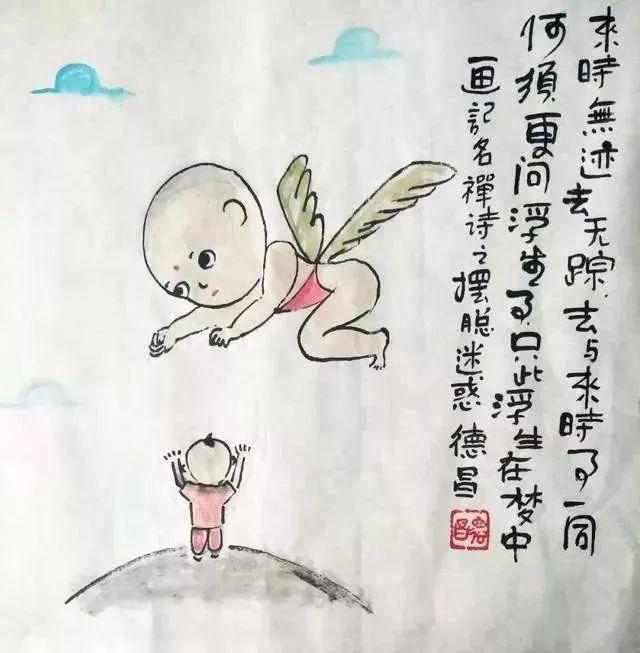 來時無迹去无踪.去与來時事一同
何須更问浮生事.只此浮生在梦中
画記名禪诗之摆脱迷惑德昌